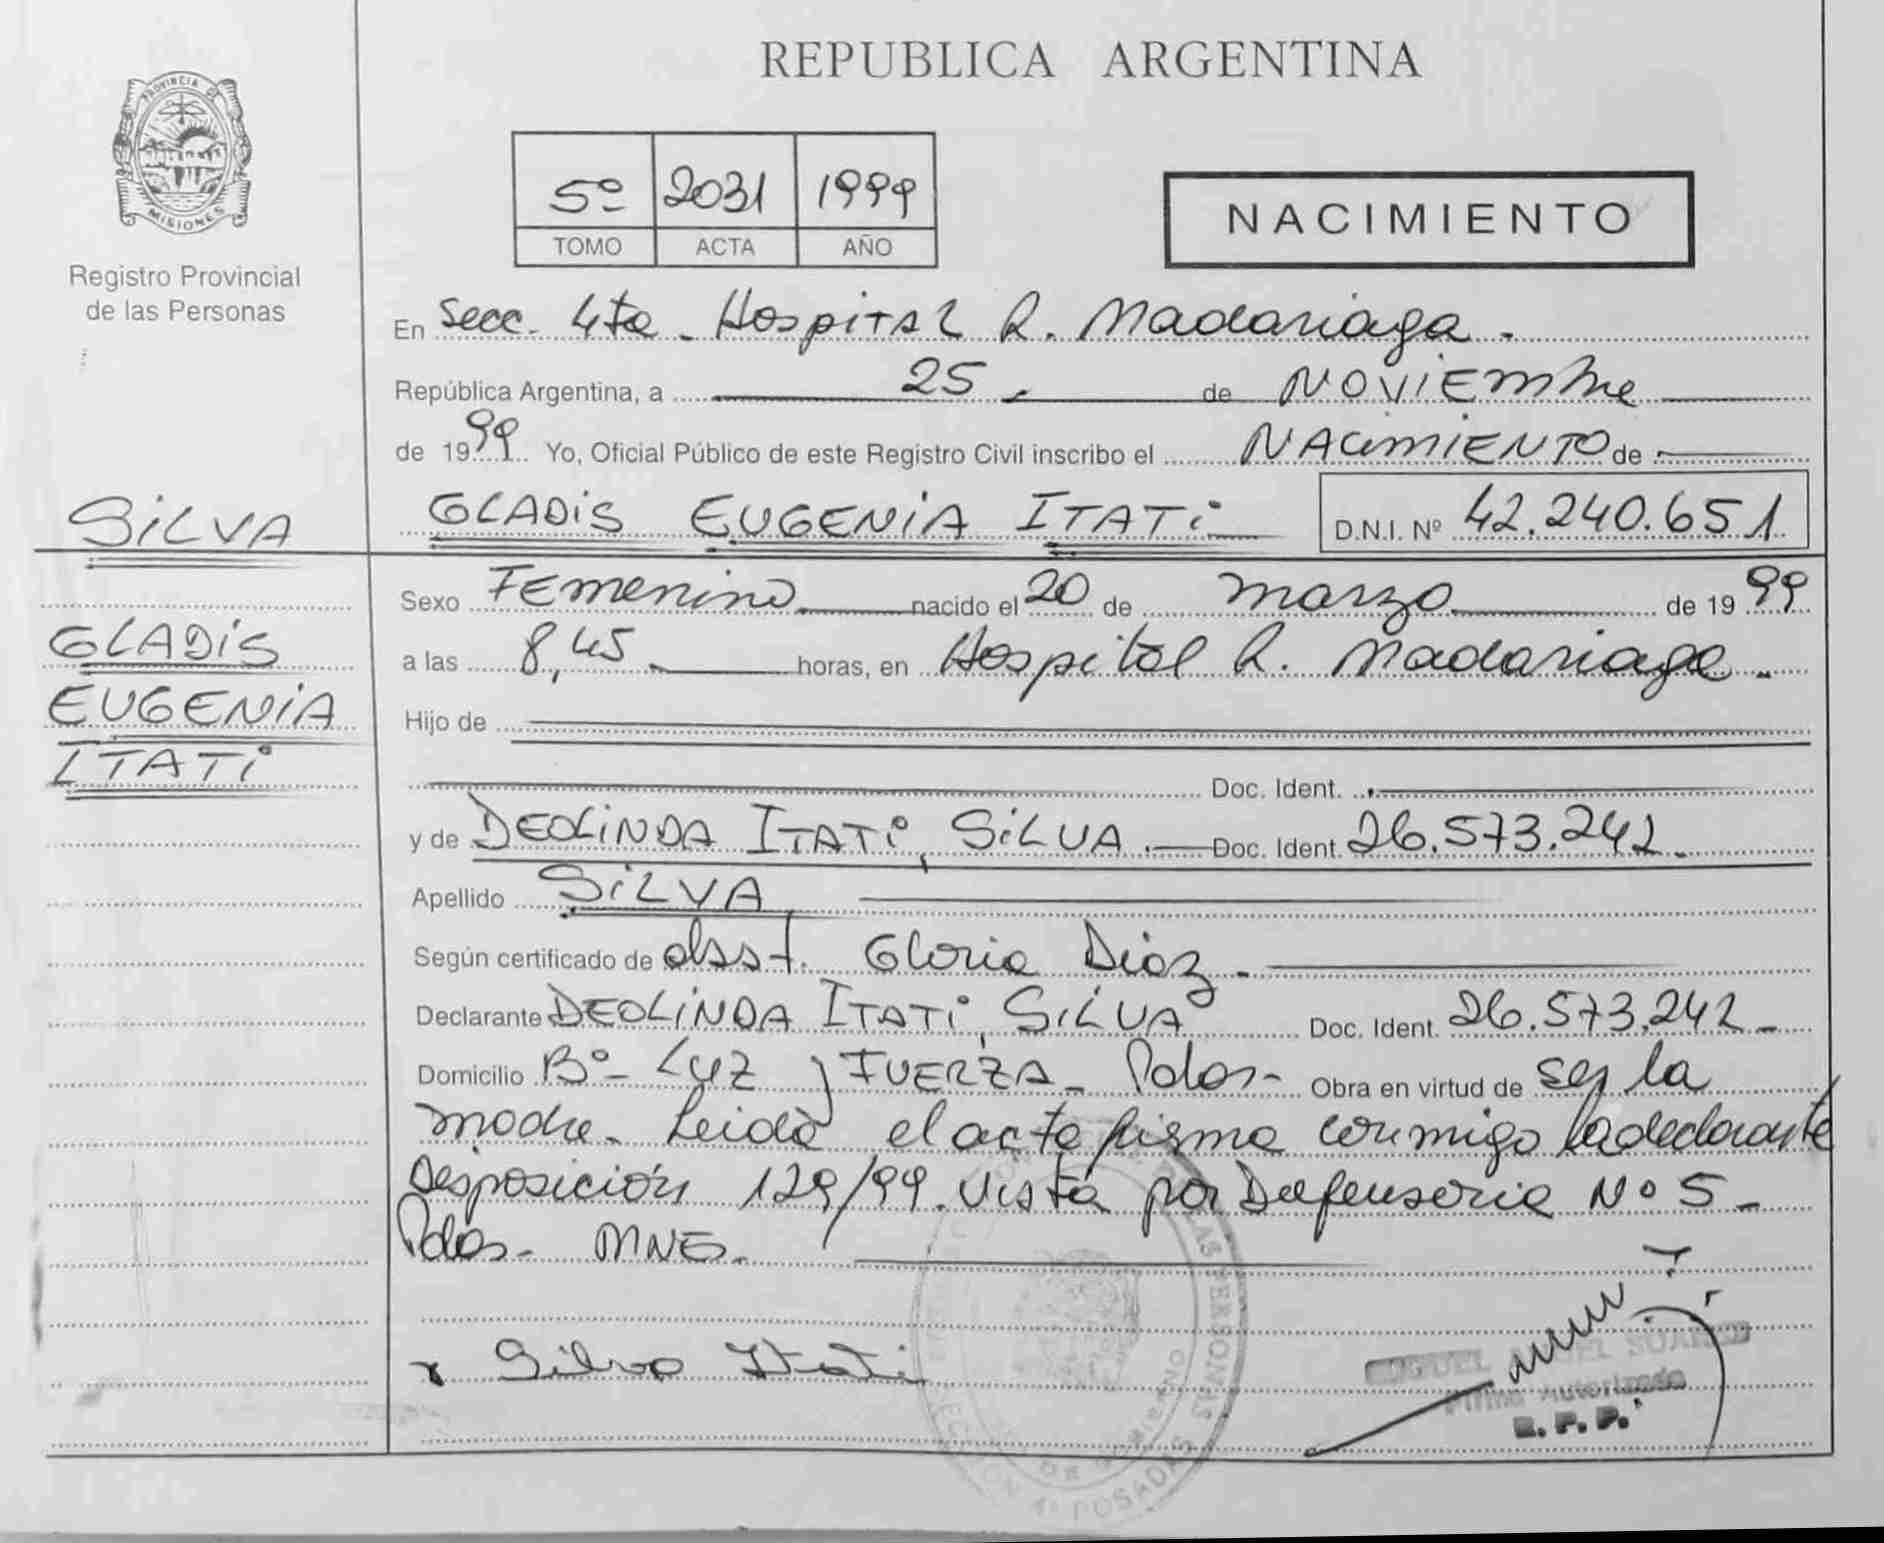 REPUBLICA ARGENTINA
PROVINCIA DE
MISIONES
Registro Provincial
de las Personas
5º 2031 1999
TOMO ACTA AÑO
NACIMIENTO
En Secc. 4ta - Hospital R. Madariaga.
República Argentina, a 25 de NOVIEmbre
de 1999 Yo, Oficial Público de este Registro Civil inscribo el NACimIENTO de
SiLVA
GLADiS EUGENiA ITATi D.N.I. Nº 42.240.651
Sexo FEmenino nacido el 20 de marzo de 1999
GLADiS
EUGENiA
ITATi
a las 8,45 horas, en Hospital R. Madariaga -
Hijo de
Doc. Ident.
y de DEOLiNDA ITATi, SiLVA . Doc. Ident. 26.573.242 -
Apellido SiLVA
Según certificado de obst. Gloria Diaz -
Declarante DEOLiNDA ITATi, SiLVA Doc. Ident. 26.573.242 -
Domicilio Bº - LUZ y FUERZA - Pdas - Obra en virtud de ser la
madre - Leida el acta firma conmigo la declarante
Disposición 129/99. Vista por Defensoria Nº 5 -
Pdas - MNES.
x Silva Itati
MIGUEL ANGEL SUAREZ
Firma Autorizada
R. P. P.
LAS PERSONAS
DE GOBIERNO
SECCION 4º POSADAS